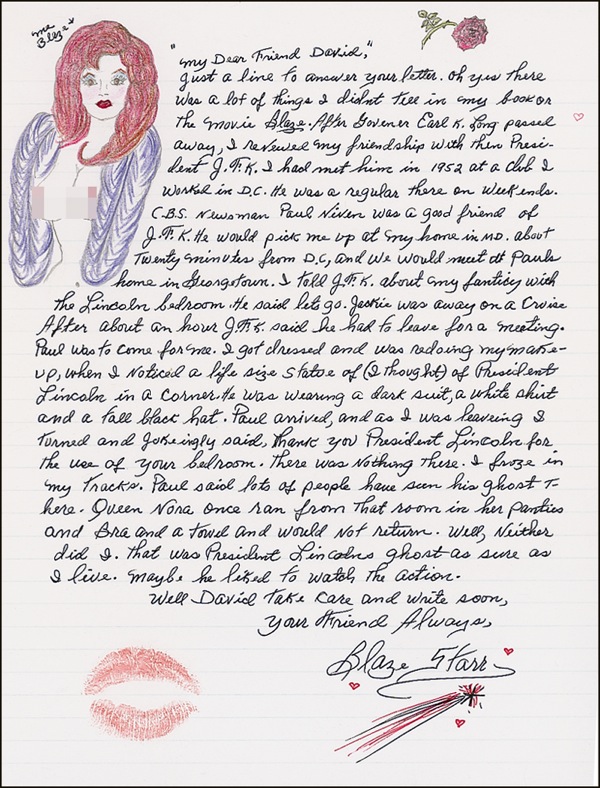 me
Blaze
"My Dear Friend David,"
Just a line to answer your letter. Oh yes there
was a lot of things I didnt tell in my book or
the movie Blaze. After Govener Earl K. Long passed
away, I renewed my friendship with then Presi-
dent J.F.K. I had met him in 1952 at a Club I
worked in D.C. He was a regular there on weekends.
C.B.S. Newsman Paul Niven was a good friend of
J.F.K. He would pick me up at my home in MD. about
Twenty minutes from D.C, and we would meet at Pauls
home in Georgetown. I told J.F.K. about my fanticy with
the Lincoln bedroom. He said lets go. Jackie was away on a Cruise
After about an hour J.F.K. said he had to leave for a meeting.
Paul was to come for me. I got dressed and was redoing my make-
up, when I noticed a life size statue of (I thought) of President
Lincoln in a corner. He was wearing a dark suit, a white shirt
and a tall black hat. Paul arrived, and as I was leaveing I
turned and Jokeingly said, thank you President Lincoln for
the use of your bedroom. There was nothing there. I froze in
my tracks. Paul said lots of people have seen his ghost T-
here. Queen Nora once ran from that room in her panties
and Bra and a towel and would not return. Well, Neither
did I. That was President Lincolns ghost as sure as
I live. Maybe he liked to watch the action.
Well David take care and write soon,
Your Friend Always,
Blaze Starr